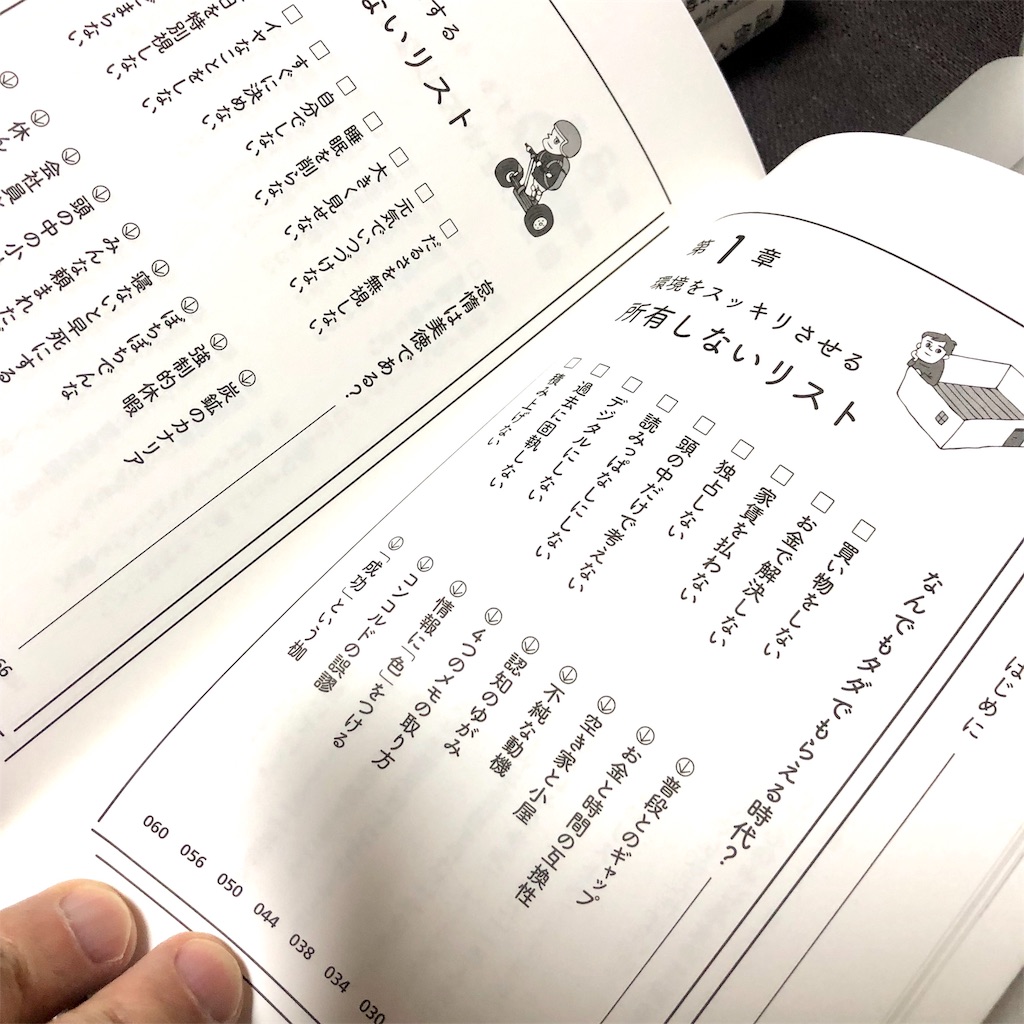 はじめに
第1章
環境をスッキリさせる
所有しないリスト
なんでもタダでもらえる時代？
買い物をしない 普段とのギャップ
お金で解決しない お金と時間の互換性
家賃を払わない 空き家と小屋 030
独占しない 不純な動機 034
頭の中だけで考えない 認知のゆがみ 038
読みっぱなしにしない 4つのメモの取り方 044
デジタルにしない 情報に「色」をつける 050
過去に固執しない コンコルドの誤謬 056
積み上げない 「成功」という枷 060
する
ないリスト
怠惰は美徳である？ 66
だるさを無視しない 炭鉱のカナリア
元気でいつづけない 強制的休暇
大きく見せない ぼちぼちでんな
睡眠を削らない 寝ないと早死にする
自分でしない みんな頼まれた
すぐに決めない 頭の中の小
イヤなことをしない 会社員
日を特別視しない 休ん
まらない